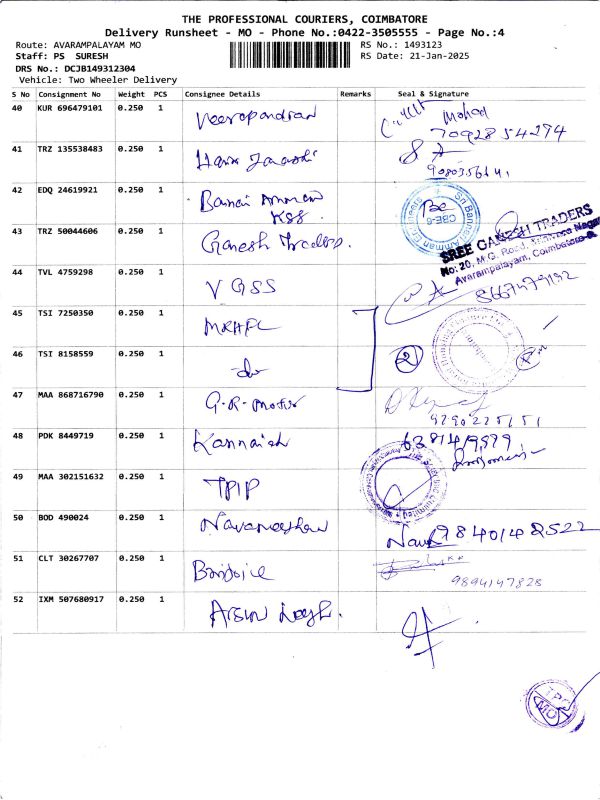 THE PROFESSIONAL COURIERS, COIMBATORE
Delivery Runsheet - MO - Phone No.:0422-3505555 - Page No.:4
Route: AVARAMPALAYAM MO
RS No.: 1493123
Staff: PS SURESH
RS Date: 21-Jan-2025
DRS No.: DCJB149312304
Vehicle: Two Wheeler Delivery
S No Consignment No Weight PCS Consignee Details Remarks Seal & Signature
40 KUR 696479101 0.250 1 Veerapandian Mohad
7092854294
41 TRZ 135538483 0.250 1 Hari
9080356141
42 EDQ 24619921 0.250 1 Bannari Amman
KSS.
Sri Bannari Amman
CBE-6
43 TRZ 50044606 0.250 1 Ganesh Traders.
SREE GANESH TRADERS
No: 20, M.G. Road, Nagar
Avarampalayam, Coimbatore-6.
44 TVL 4759298 0.250 1 V GSS
8667479192
45 TSI 7250350 0.250 1
46 TSI 8158559 0.250 1 do (2)
47 MAA 868716790 0.250 1 G.R. Motor
9290225151
48 PDK 8449719 0.250 1 Kannaiah
49 MAA 302151632 0.250 1 TPIP
50 BOD 490024 0.250 1 Nava 9840142522
51 CLT 30267707 0.250 1
9894147828
52 IXM 507680917 0.250 1
TPC
MO